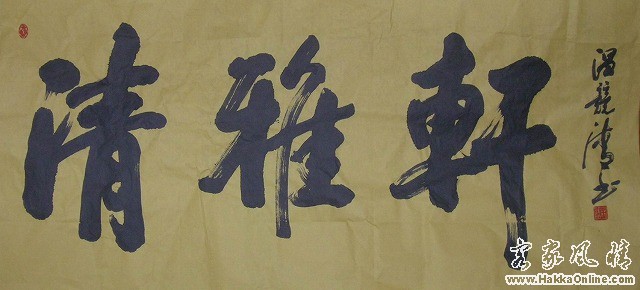 清雅軒
温競
客家风情
www.HakkaOnline.com